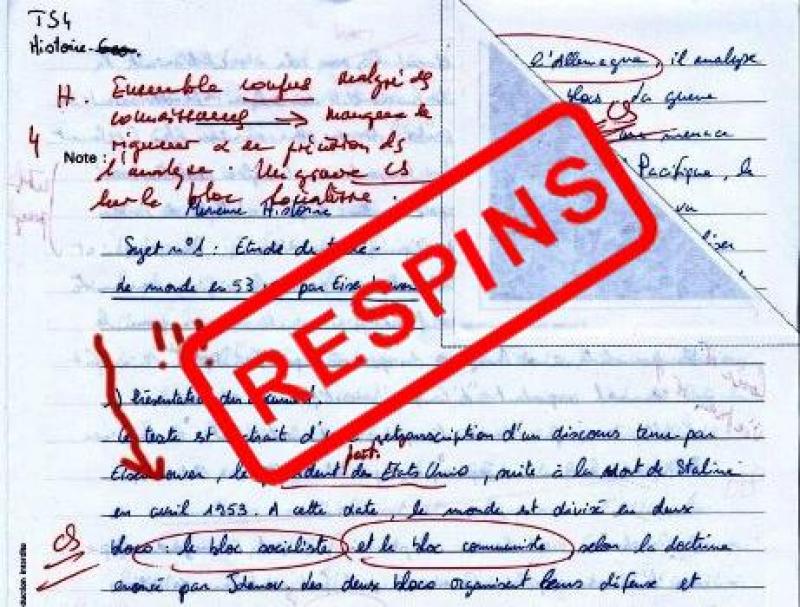 TS4
Histoire
H. Ensemble confus malgré des
connaissances → manque de
4
Note :
rigueur & de précision ds
l'analyse. Un grave CS
sur le bloc socialiste.
Histoire
Sujet n°1 : Etude de
le monde en 53 par Eisenhower
!!!
RESPINS
l'Allemagne, il analyse
blocs, la guerre
CS
menace
Pacifique, le
va
1) Présentation du document.
Le texte est extrait d'une retranscription d'un discours tenu par
Eisenhower, le président des Etats Unis, suite à la mort de Staline
en avril 1953. A cette date, le monde est divisé en deux
CS
blocs : le bloc socialiste et le bloc communiste selon la doctrine
énoncé par Jdanov. Les deux blocs organisent leurs défense et
duction interdite